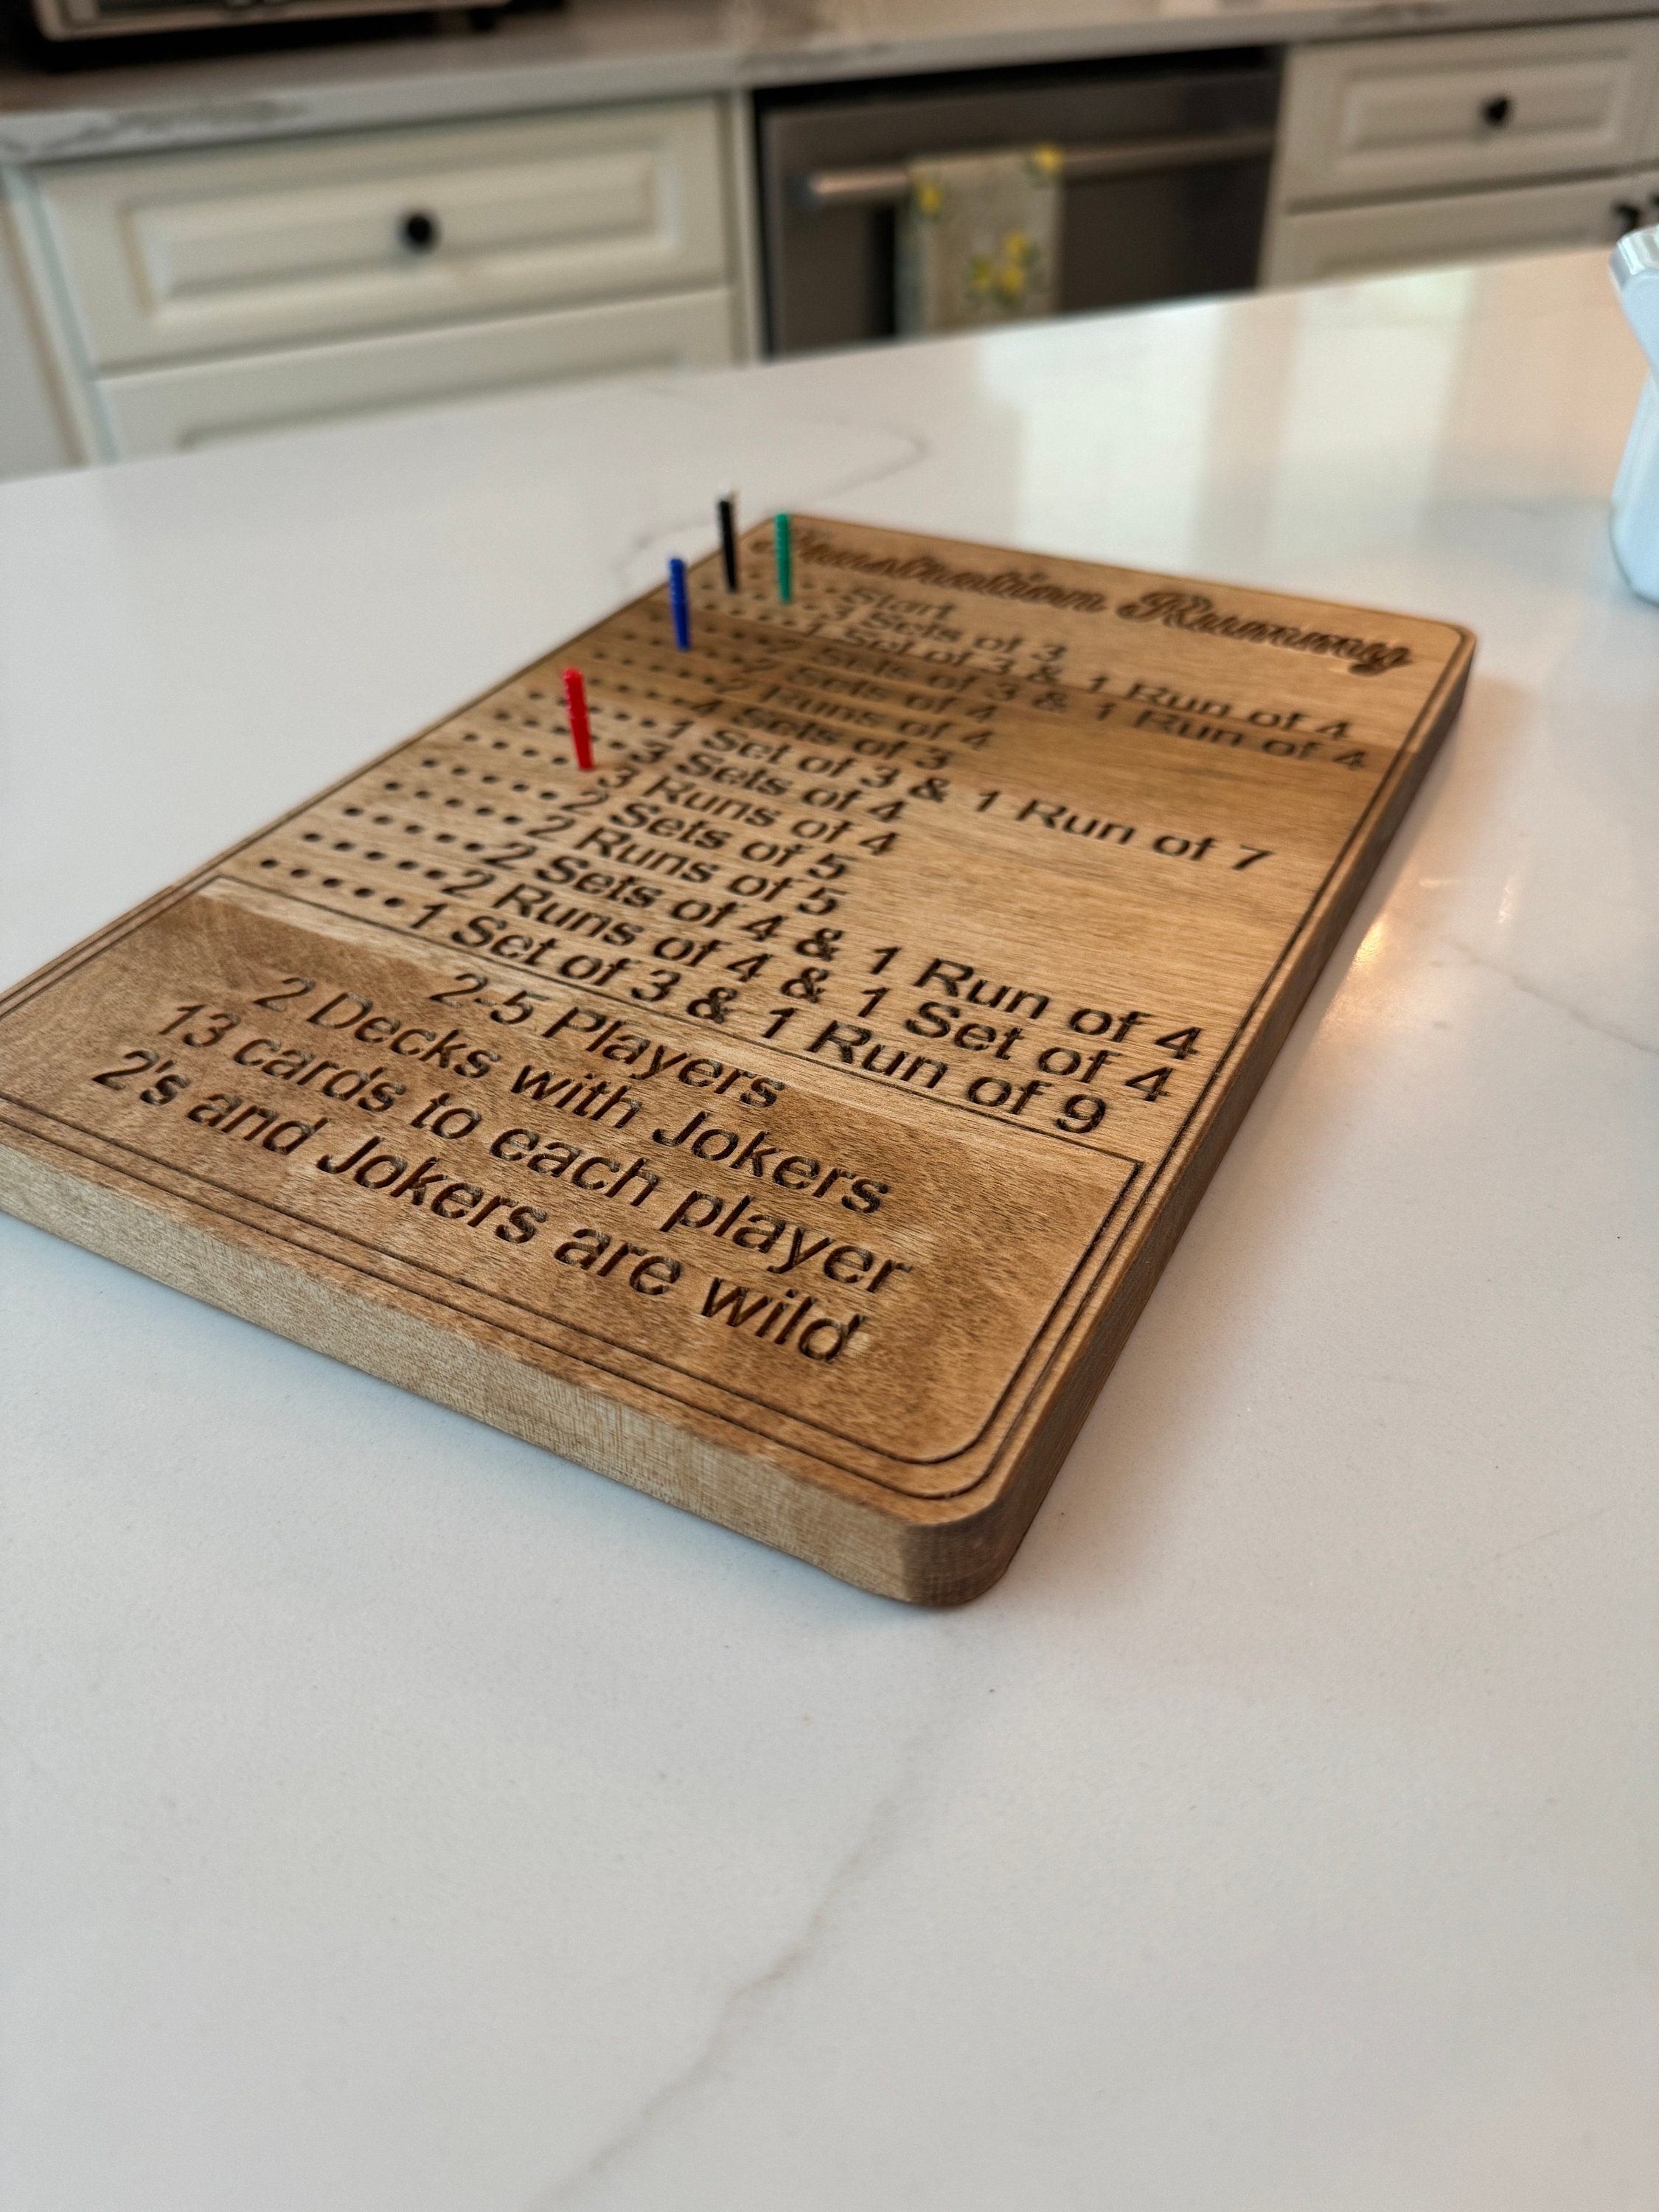 Frustration Rummy
Start
3 Sets of 3
1 Set of 3 & 1 Run of 4
2 Sets of 3 & 1 Run of 4
2 Sets of 4
2 Runs of 4
4 Sets of 3
1 Set of 3 & 1 Run of 7
3 Sets of 4
3 Runs of 4
2 Sets of 5
2 Runs of 5
2 Sets of 4 & 1 Run of 4
2 Runs of 4 & 1 Set of 4
1 Set of 3 & 1 Run of 9
2-5 Players
2 Decks with Jokers
13 cards to each player
2's and Jokers are wild